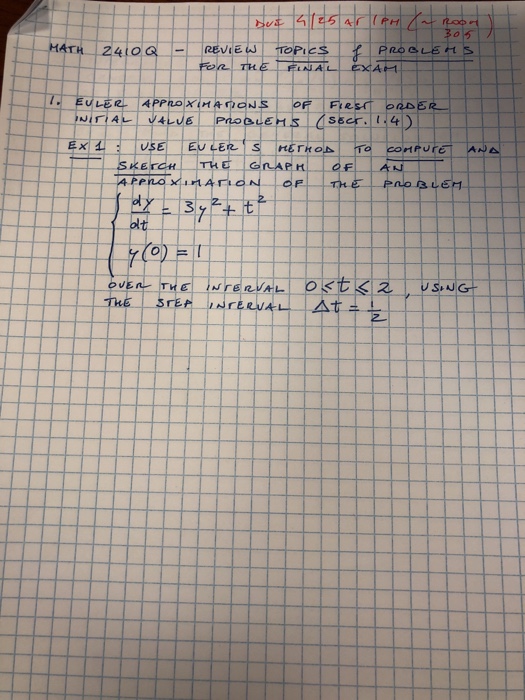 DUE 4/25 AT 1PM (~ ROOM 305)
MATH 2410Q - REVIEW TOPICS & PROBLEMS
FOR THE FINAL EXAM
1. EULER APPROXIMATIONS OF FIRST ORDER
INITIAL VALUE PROBLEMS (SECT. 1.4)
EX 1 : USE EULER'S METHOD TO COMPUTE AND
SKETCH THE GRAPH OF AN
APPROXIMATION OF THE PROBLEM
dy/dt = 3y² + t²
y(0) = 1
OVER THE INTERVAL 0≤t≤2, USING
THE STEP INTERVAL Δt = 1/2